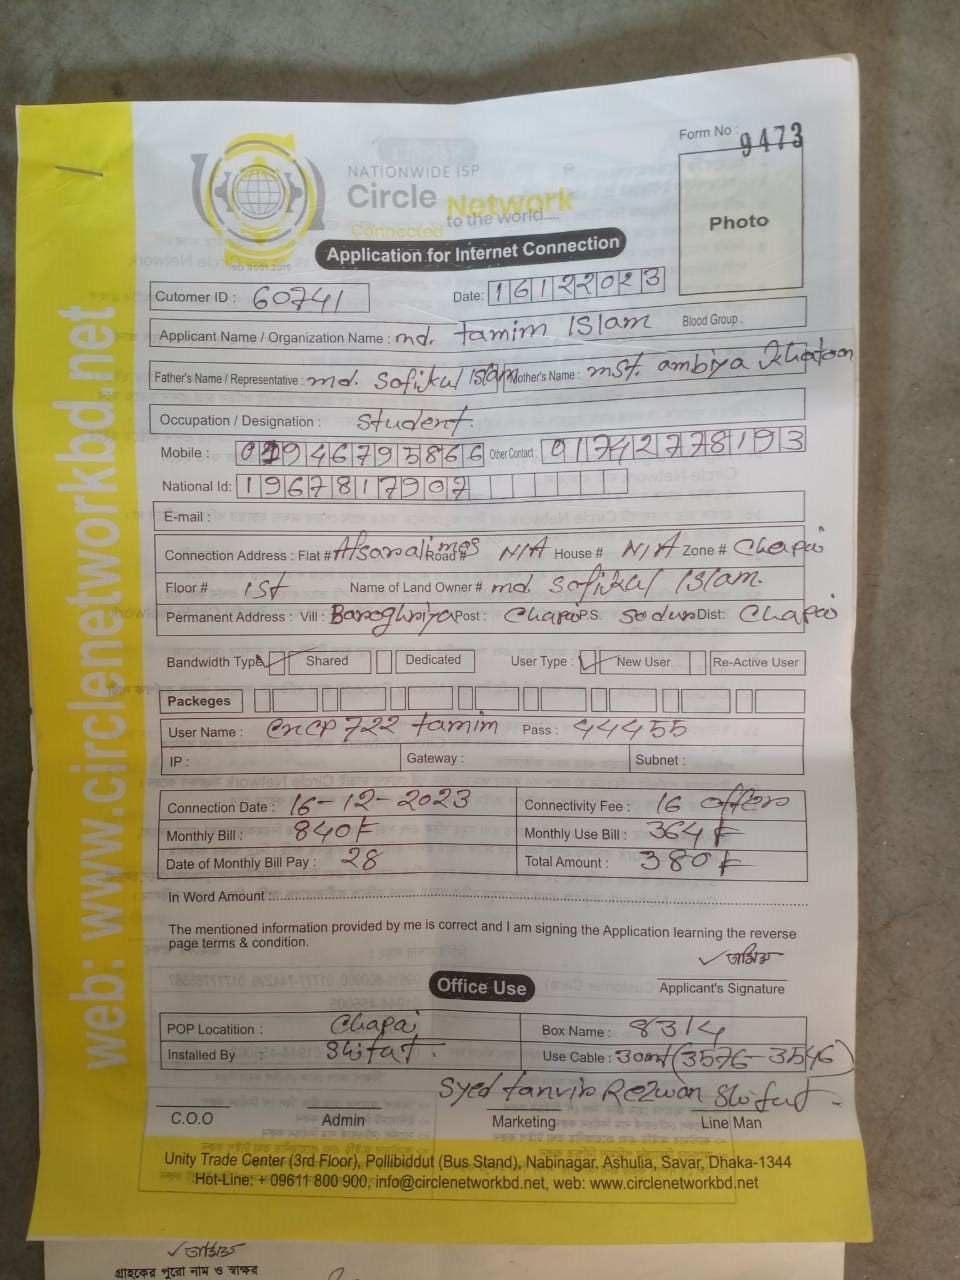 Form No : 9473
NATIONWIDE ISP
Circle Network
Connected to the world....
ISO 9001:2015
Photo
Application for Internet Connection
Cutomer ID : 60741 Date: 16122023
Applicant Name / Organization Name : md. tamim ISlam Blood Group :
Father's Name / Representative : md. Sofikul ISlam Mother's Name : mst. ambiya Khatoon
Occupation / Designation : Student.
Mobile : 01946795866 Other Contact : 01742778193
National Id: 1967817907
E-mail :
Connection Address : Flat # Road # N/A House # N/A Zone # Chapai
Floor # 1St Name of Land Owner # md. Sofikul ISlam.
Permanent Address : Vill : Baroghriya Post : Chapai P.S. Sodur Dist: Chapai
Bandwidth Type Shared Dedicated User Type : New User Re-Active User
Packeges
User Name : CNCP722 tamim Pass : 44455
IP : Gateway : Subnet :
Connection Date : 16-12-2023 Connectivity Fee : 16 offer
Monthly Bill : 840/- Monthly Use Bill : 364/-
Date of Monthly Bill Pay : 28 Total Amount : 380/-
In Word Amount :
The mentioned information provided by me is correct and I am signing the Application learning the reverse
page terms & condition.
তামিম
Applicant's Signature
Office Use
POP Locatition : Chapai Box Name : 83/4
Installed By : Shifat. Use Cable : 30mt (3576-3546)
Syed tanvir Rezwan Shifat
C.O.O Admin Marketing Line Man
Unity Trade Center (3rd Floor), Pollibiddut (Bus Stand), Nabinagar, Ashulia, Savar, Dhaka-1344
Hot-Line: + 09611 800 900, info@circlenetworkbd.net, web: www.circlenetworkbd.net
web: www.circlenetworkbd.net
তামিম
গ্রাহকের পুরো নাম ও স্বাক্ষর